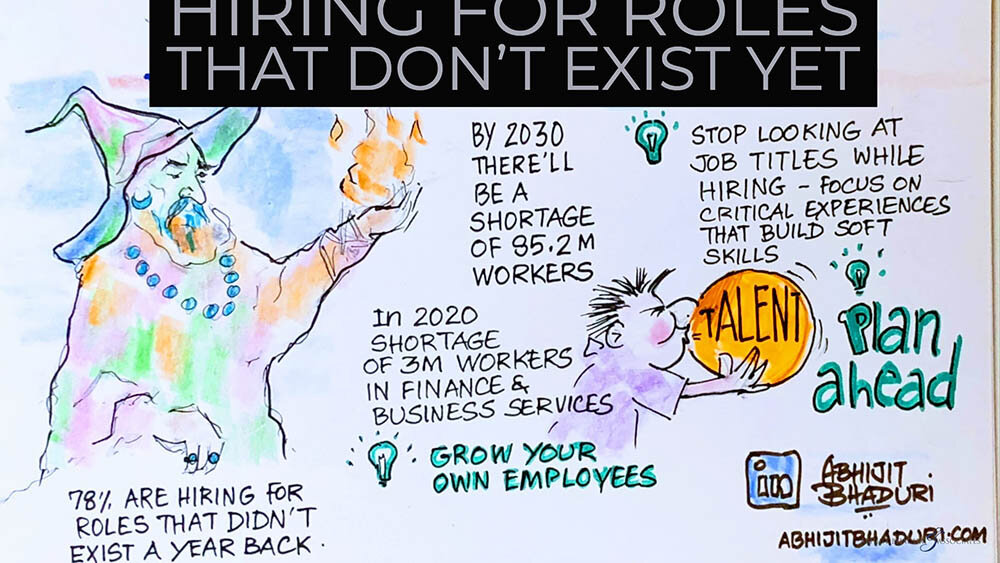 HIRING FOR ROLES
THAT DON'T EXIST YET
BY 2030
THERE'LL
BE A
SHORTAGE
OF 85.2M
WORKERS
STOP LOOKING AT
JOB TITLES WHILE
HIRING - FOCUS ON
CRITICAL EXPERIENCES
THAT BUILD SOFT
SKILLS
In 2020
SHORTAGE
OF 3M WORKERS
IN FINANCE &
BUSINESS SERVICES
TALENT
Plan
ahead
GROW YOUR
OWN EMPLOYEES
78% ARE HIRING FOR
ROLES THAT DIDN'T
EXIST A YEAR BACK.
in
ABHIJIT
BHADURI
ABHIJITBHADURI.COM
ASSOCIATES